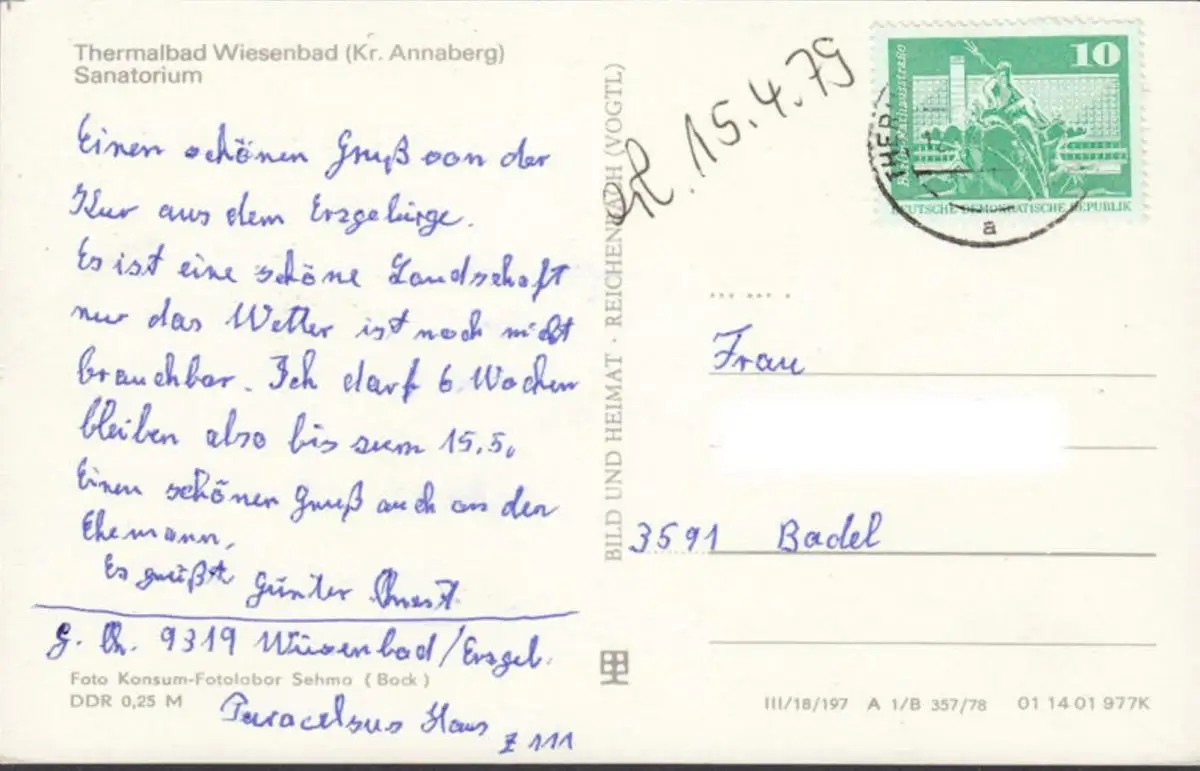 Thermalbad Wiesenbad (Kr. Annaberg)
Sanatorium
Einen schönen Gruß von der
Kur aus dem Erzgebirge.
Es ist eine schöne Landschaft
nur das Wetter ist noch nicht
brauchbar. Ich darf 6 Wochen
bleiben also bis zum 15.5.
Einen schönen Gruß auch an den
Ehemann,
Es grüßt Günter
G. 9319 Wiesenbad/Erzgeb.
Foto Konsum-Fotolabor Sehma (Bock)
DDR 0,25 M
Paracelsus Haus
Z 111
BILD UND HEIMAT · REICHENBACH (VOGTL)
15.4.79
10
DEUTSCHE DEMOKRATISCHE REPUBLIK
THER
a
Frau
3591 Badel
III/18/197 A 1/B 357/78 01 14 01 977K